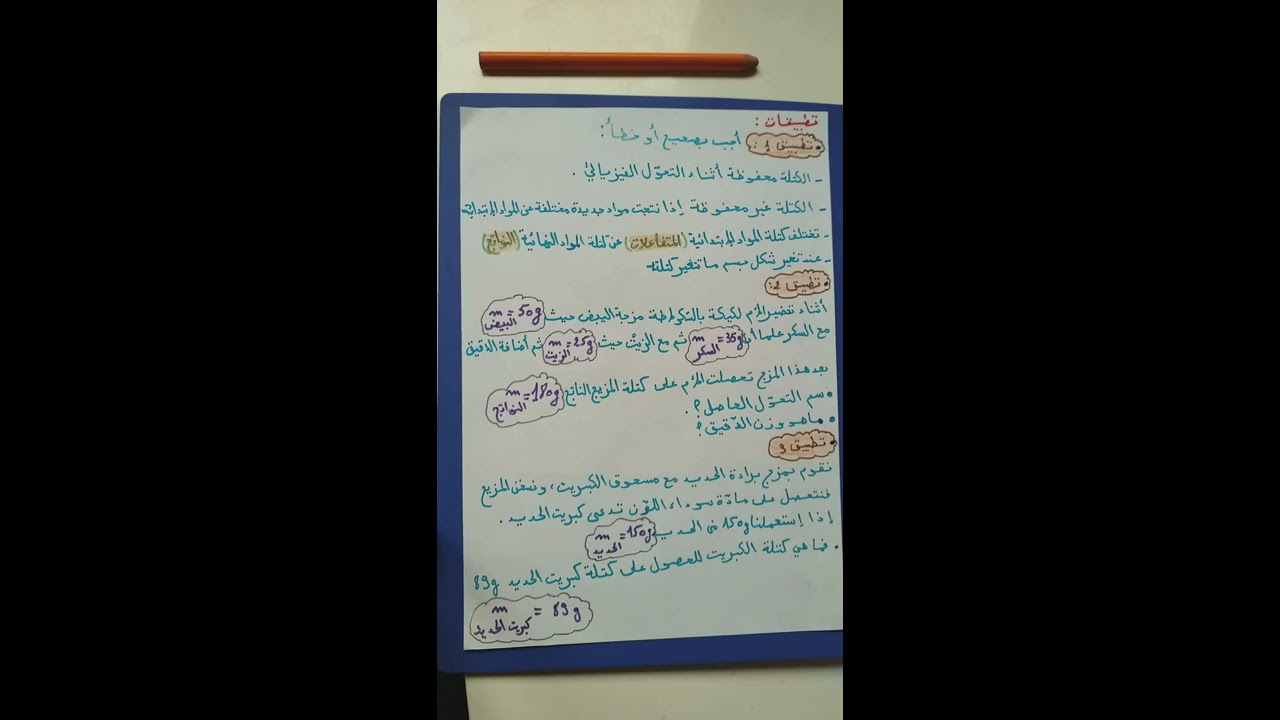 تطبيقات :
• تطبيق 1 : أجب بصحيح أو خطأ :
- الكتلة محفوظة أثناء التحوّل الفيزيائي .
- الكتلة غير محفوظة إذا نتجت مواد جديدة مختلفة عن المواد الإبتدائية
- تختلف كتلة المواد الإبتدائية (المتفاعلات) عن كتلة المواد النهائية (النواتج)
- عند تغير شكل جسم ما تتغير كتلته
• تطبيق 2 :
أثناء تحضير الأم لكيكة بالشكولاطة مزجة البيض حيث m البيض = 50g
مع السكر علما أن m السكر = 35g ثم مع الزيت حيث m الزيت = 25g ثم أضافة الدقيق
بعد هذا المزج تحصلت الأم على كتلة المزيج الناتج m النواتج = 180g
• سم التحوّل الحاصل ؟ .
• ماهو وزن الدقيق ؟
• تطبيق 3
نقوم بمزج برادة الحديد مع مسحوق الكبريت ، ونسخن المزيج
فنتحصل على مادّة سوداء اللّون تدعى كبريت الحديد .
إذا إستعملنا 150g من الحديد m الحديد = 150g
• فما هي كتلة الكبريت للحصول على كتلة كبريت الحديد 89g
m كبريت الحديد = 89g